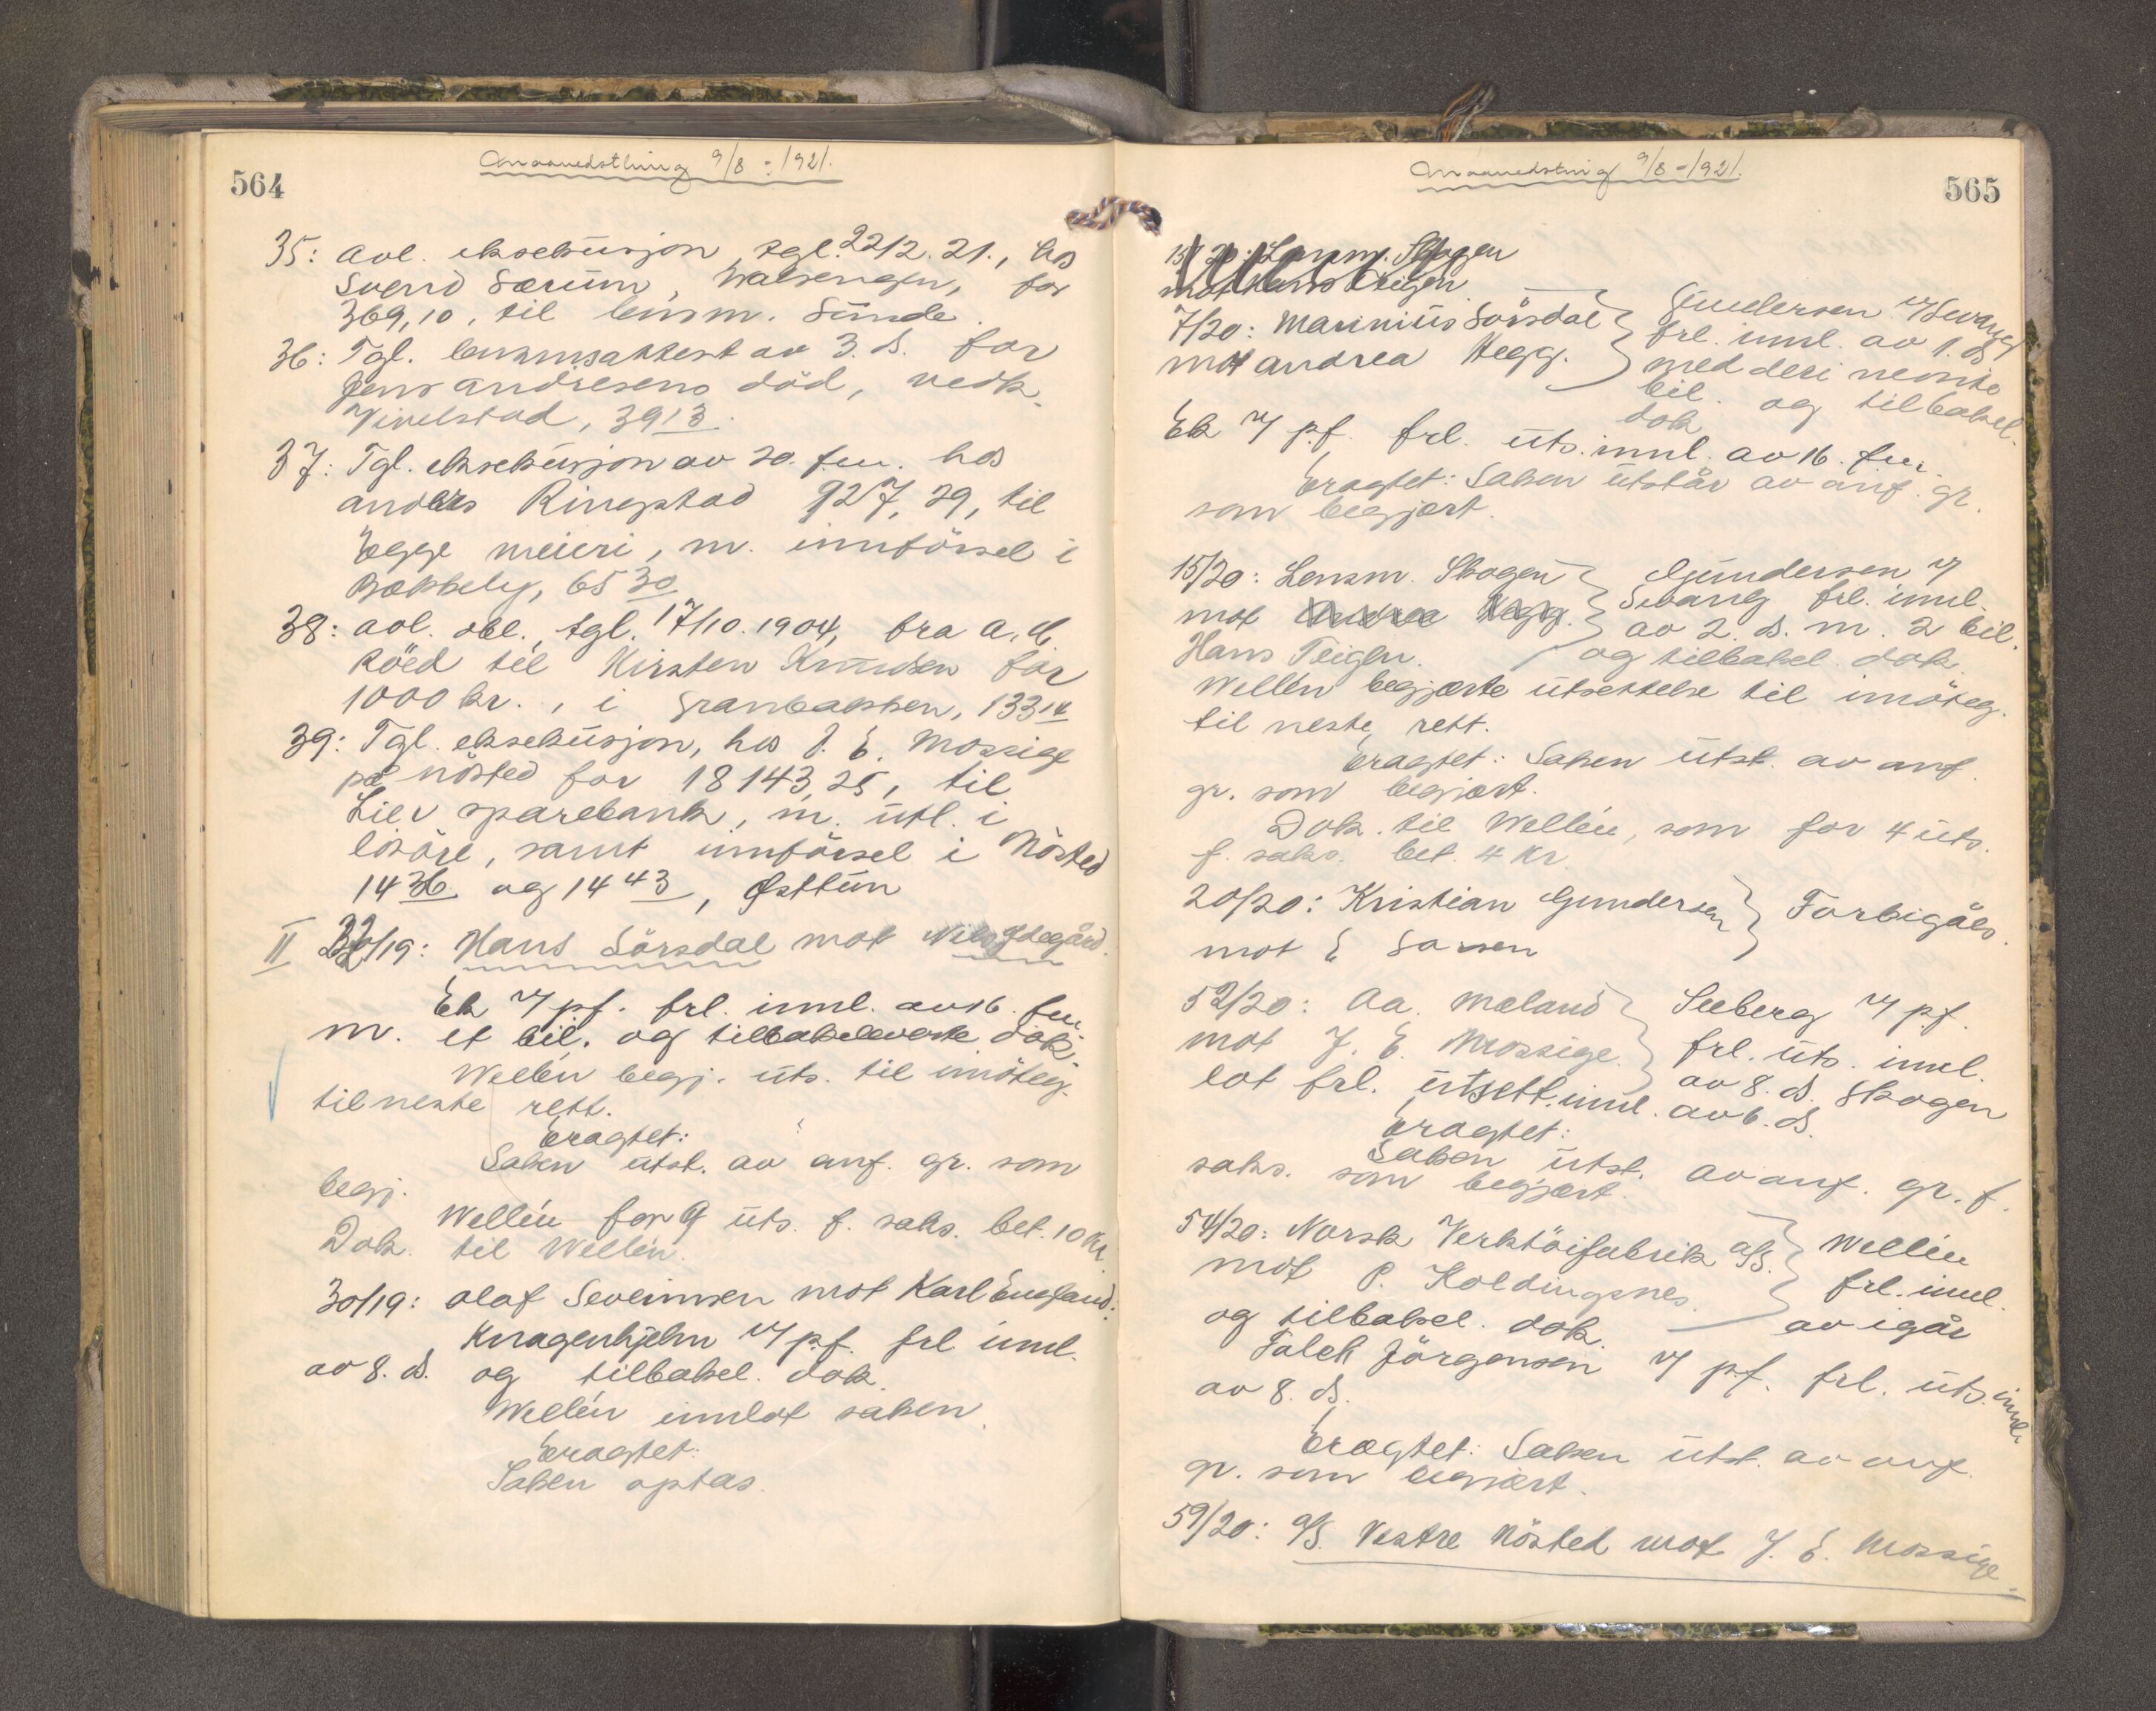 564
Maanedsthing 9/8 - 1921.
35: Avl. eksekusjon, tgl. 22/2. 21., hos
Svend Særum, Walsengen, for
369,10, til lensm. Sunde.
36: Tgl. lensmsattest av 3. ds. for
Jens Andresens död, vedk.
Vivelstad, 39 13.
37: Tgl. eksekusjon av 20. f.m. hos
Anders Ringstad 927,29, til
Egge meieri, m. innförsel i
65 30
38: Avl. obl. tgl. 17/10. 1904, fra A. H.
Röed til Kirsten Knudsen for
1000 kr., i Granbakken, 133 14
39: Tgl. eksekusjon, hos J. E. Mossige
på Nösted for 18143,25, til
Lier sparebank, m. utl. i
lösöre, samt innförsel i Nösted
14 36 og 14 43, Østtun
II 22/19: Hans Sörsdal mot Nils Ødegård.
Ek v/ pf. frl. innl. av 16. f.m.
m. et bil. og tilbakeleverte dok.
Wellén begj. uts. til imöteg.
til neste rett.
Eragtet:
Saken utst. av anf. gr. som
begj.
Wellén for 9 uts. f. saks. bet. 10 Kr
Dok. til Wellén.
30/19: Olaf Severinsen mot Karl England.
Knagenhjelm v/ p.f. frl innl.
av 8. ds. og tilbakel. dok.
Wellén innlot saken.
Eragtet:
Saken optas.
565
Maanedsting 9/8 - 1921.
15/20: Lensm. Skogen
mot Hans Teigen
7/20: Marinius Sörsdal
mot Andrea Hegg.
Gundersen v/ Svang
frl. innl. av 1. ds
med deri nevnte
bil. og tilbakel.
dok
Ek v/ p.f. frl. uts. innl. av 16. f.m.
Eragtet: Saken utstår av anf. gr.
som begjært.
15/20: Lensm. Skogen
mot Andrea Hegg.
Hans Teigen.
Gundersen v/
Svang frl. innl.
av 2. ds. m. 2 bil.
og tilbakel. dok.
Wellén begjærte utsettelse til imöteg.
til neste rett.
Eragtet: Saken utst. av anf.
gr. som begjært.
Dok. til Wellén, som for 4 uts.
f. saks. bet. 4 Kr.
20/20: Kristian Gundersen
mot E Larsen
Forbigåes.
52/20: Aa. Mæland
mot J. E. Mossige.
Seeberg v/ pf.
frl. uts. innl.
av 8. ds. Skogen
lot frl. utsett. innl. av 6. ds.
Eragtet:
Saken utst. av anf. gr. f.
saks. som begjært.
54/20: Norsk Verktöifabrik A/S.
mot P. Koldingsnes.
Wellén
frl. innl.
av igår
og tilbakel. dok.
Falck Jörgensen v/ p.f. frl. uts. innl.
av 8. ds.
Eragtet: Saken utst. av anf.
gr. som begjært.
59/20: A/S. Vestre Nösted mot J. E. Mossige.